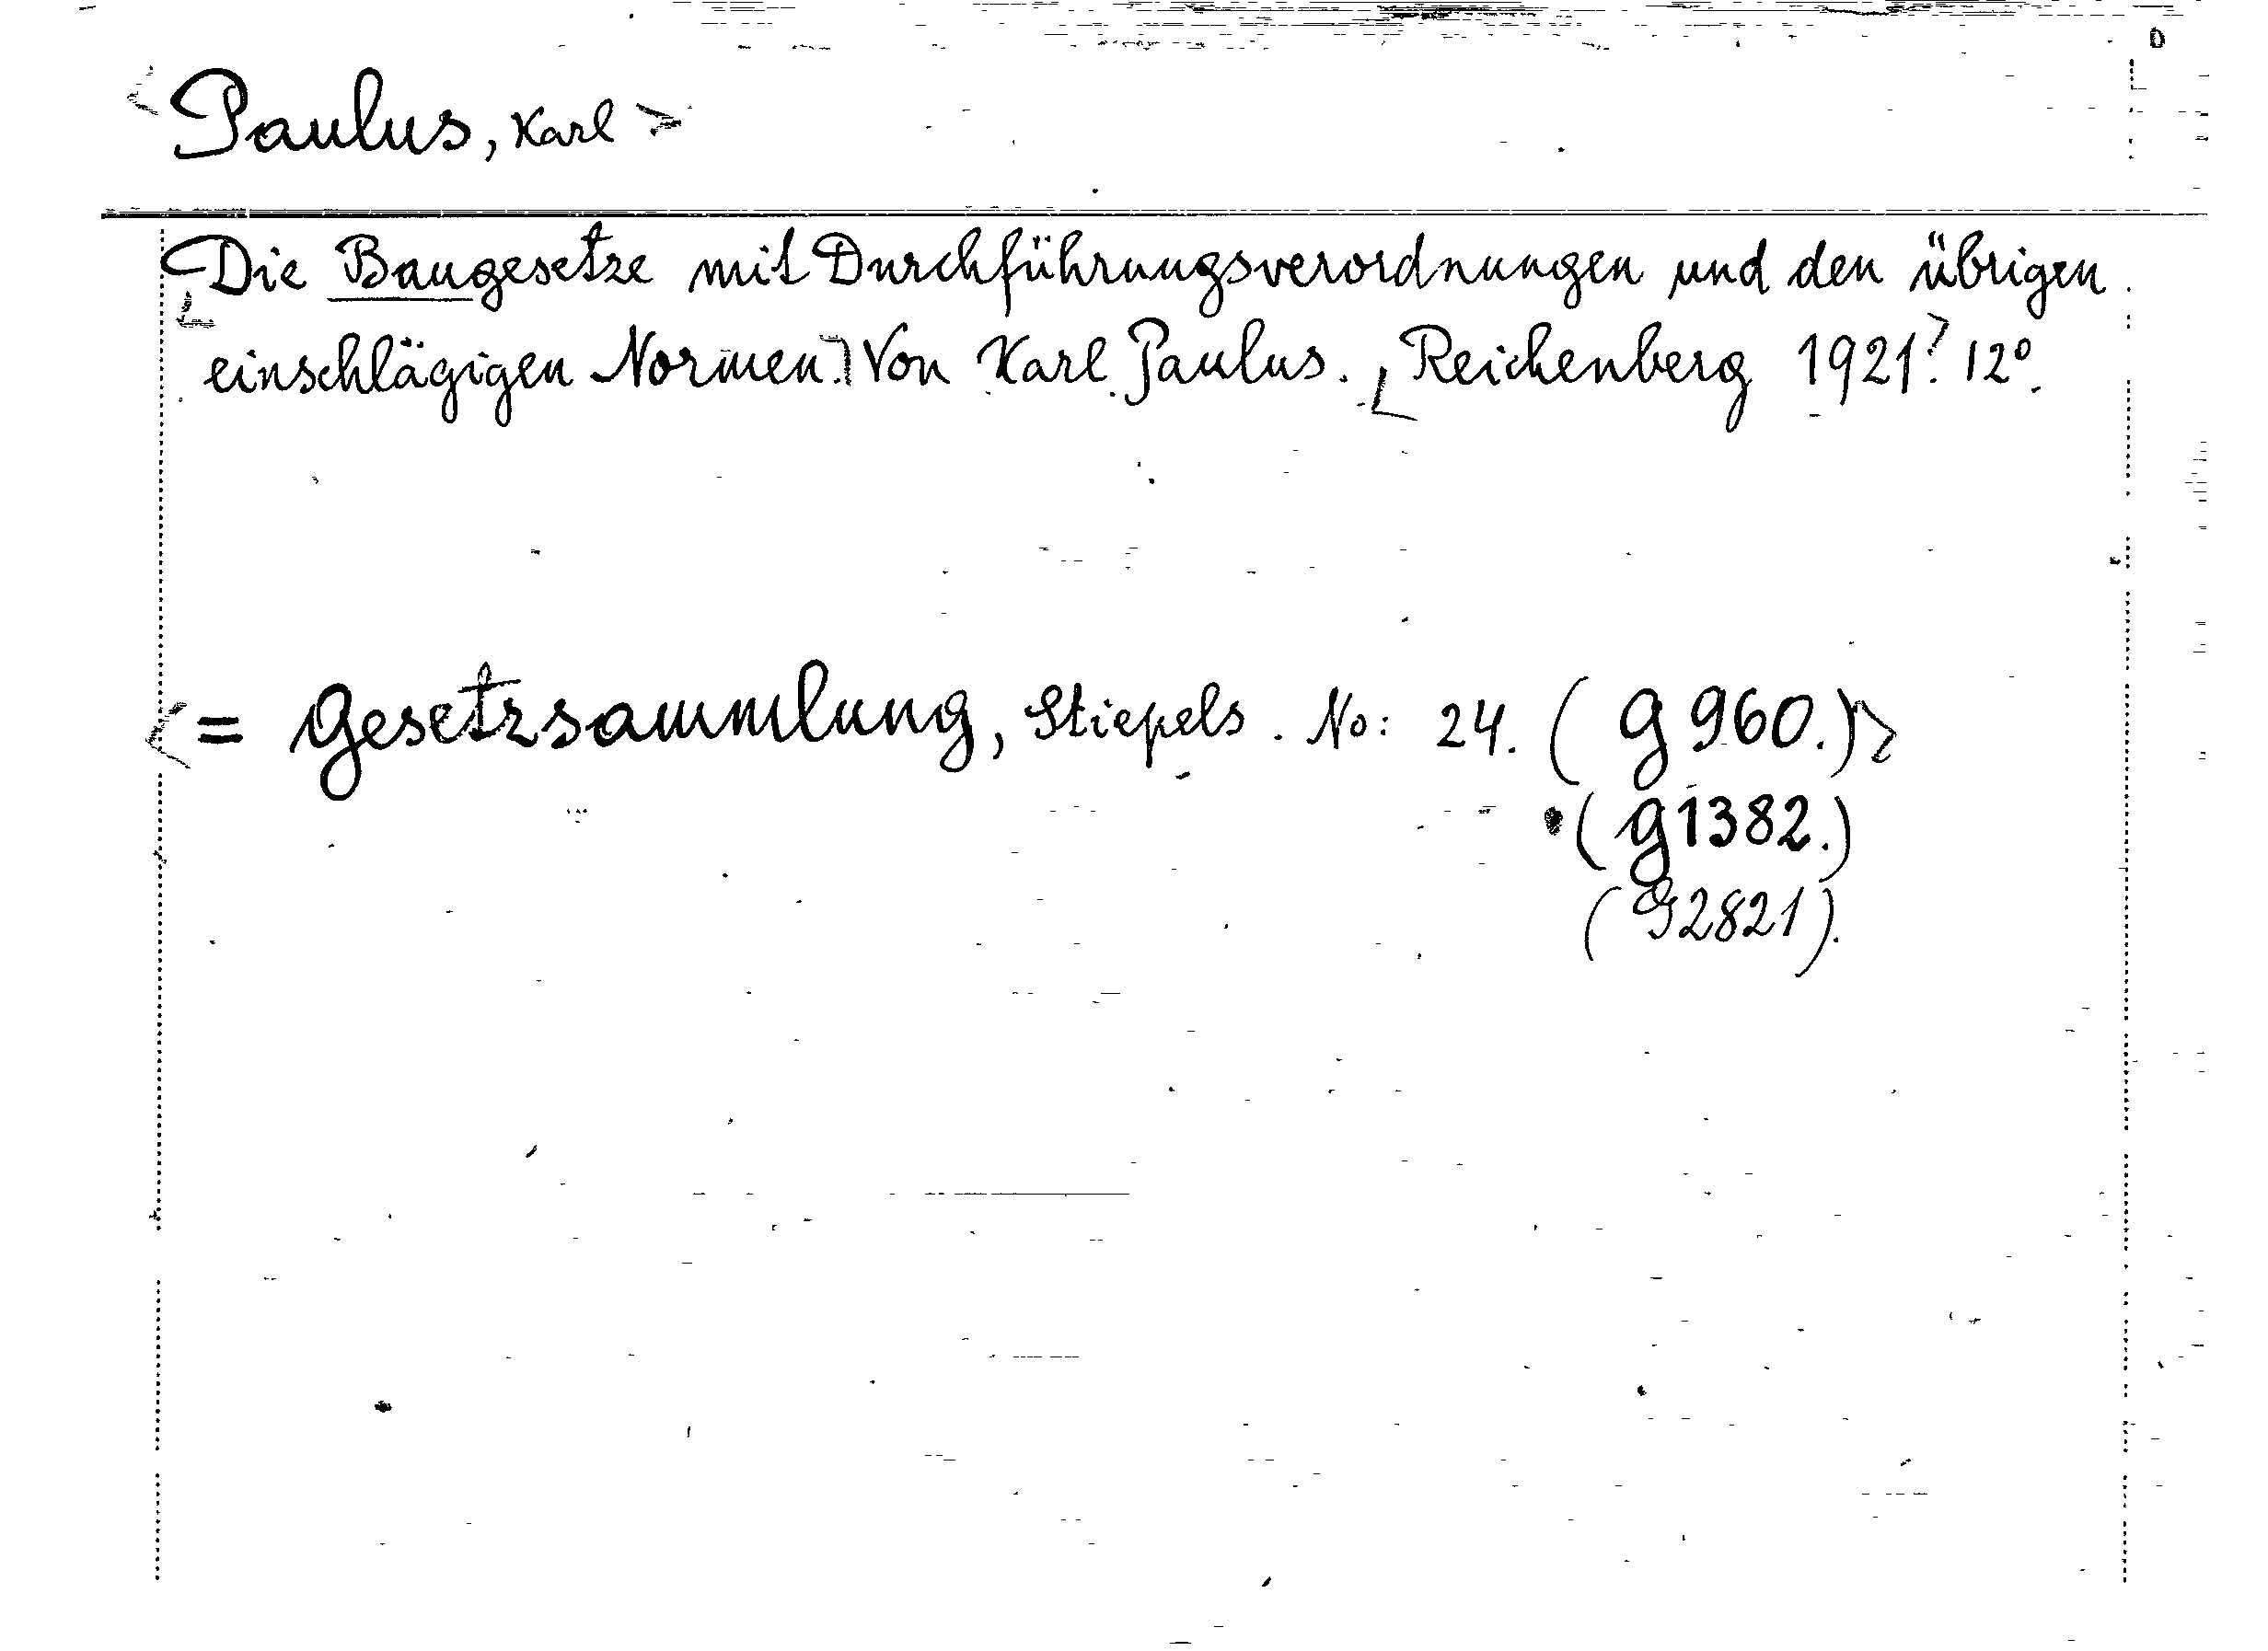 <Paulus, Karl>
Die Baugesetze mit Durchführungsverordnungen und den übrigen
einschlägigen Normen. Von Karl Paulus. Reichenberg 1921. 12°.
<= Gesetzsammlung, Stiepels. No: 24. (G 960.)>
(G 1382.)
(G 2821).